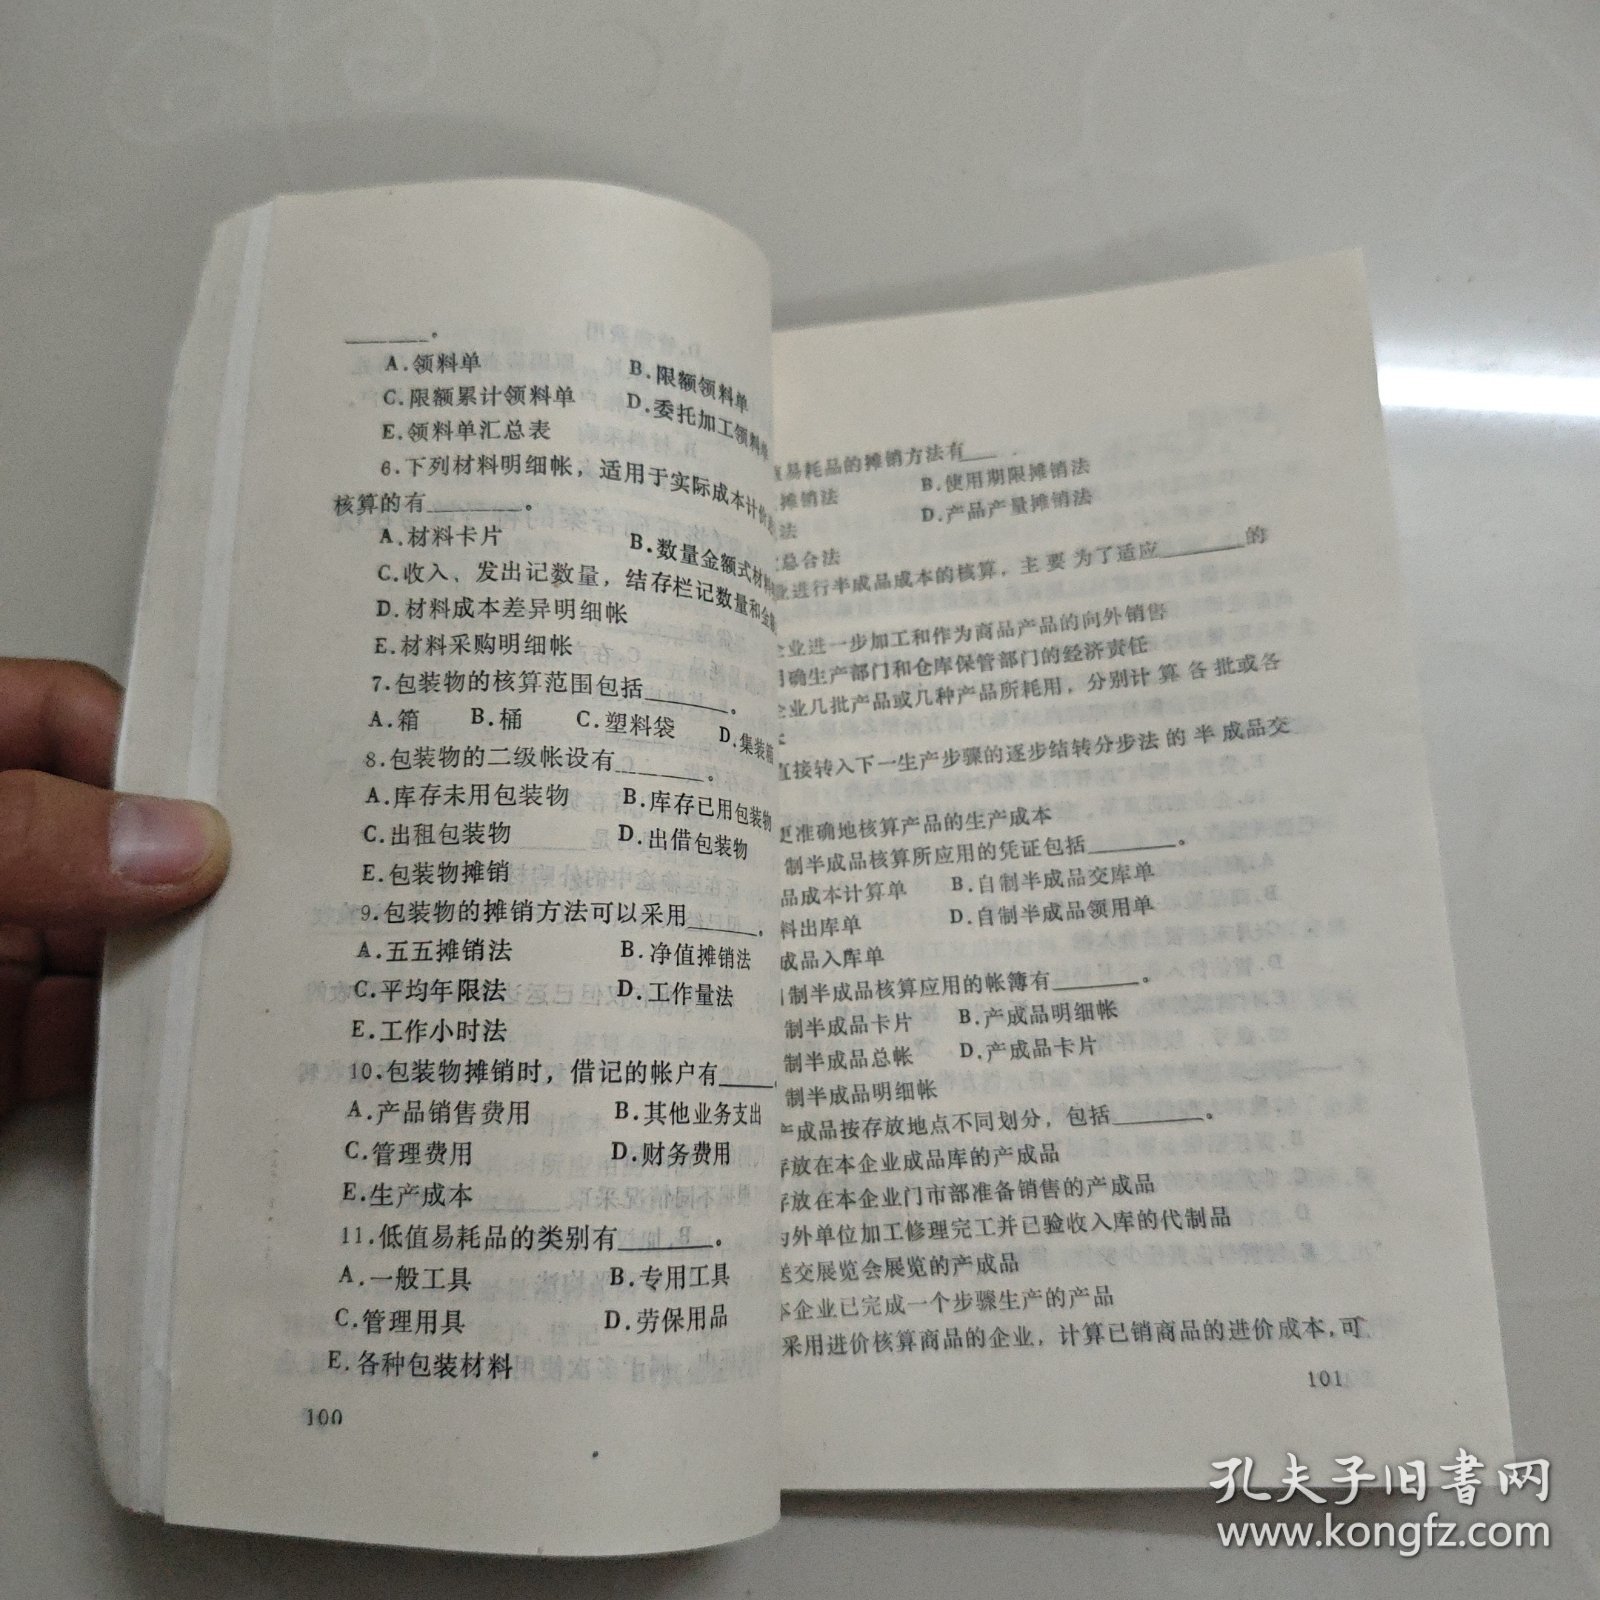 ________。
A.领料单 B.限额领料单
C.限额累计领料单 D.委托加工领料单
E.领料单汇总表
6.下列材料明细帐，适用于实际成本计价
核算的有________。
A.材料卡片 B.数量金额式材料
C.收入、发出记数量，结存栏记数量和金额
D.材料成本差异明细帐
E.材料采购明细帐
7.包装物的核算范围包括________。
A.箱 B.桶 C.塑料袋 D.集装箱
8.包装物的二级帐设有________。
A.库存未用包装物 B.库存已用包装物
C.出租包装物 D.出借包装物
E.包装物摊销
9.包装物的摊销方法可以采用______。
A.五五摊销法 B.净值摊销法
C.平均年限法 D.工作量法
E.工作小时法
10.包装物摊销时，借记的帐户有____
A.产品销售费用 B.其他业务支出
C.管理费用 D.财务费用
E.生产成本
11.低值易耗品的类别有________。
A.一般工具 B.专用工具
C.管理用具 D.劳保用品
E.各种包装材料
100
易耗品的摊销方法有___.
摊销法 B.使用期限摊销法
法 D.产品产量摊销法
总合法
业进行半成品成本的核算，主要为了适应________的
企业进一步加工和作为商品产品的向外销售
明确生产部门和仓库保管部门的经济责任
企业几批产品或几种产品所耗用，分别计算各批或各
直接转入下一生产步骤的逐步结转分步法的半成品交
更准确地核算产品的生产成本
制半成品核算所应用的凭证包括________。
品成本计算单 B.自制半成品交库单
料出库单 D.自制半成品领用单
成品入库单
制半成品核算应用的帐簿有________。
制半成品卡片 B.产成品明细帐
制半成品总帐 D.产成品卡片
制半成品明细帐
产成品按存放地点不同划分，包括________。
存放在本企业成品库的产成品
存放在本企业门市部准备销售的产成品
为外单位加工修理完工并已验收入库的代制品
送交展览会展览的产成品
本企业已完成一个步骤生产的产品
采用进价核算商品的企业，计算已销商品的进价成本，可
101
孔夫子旧书网
www.kongfz.com